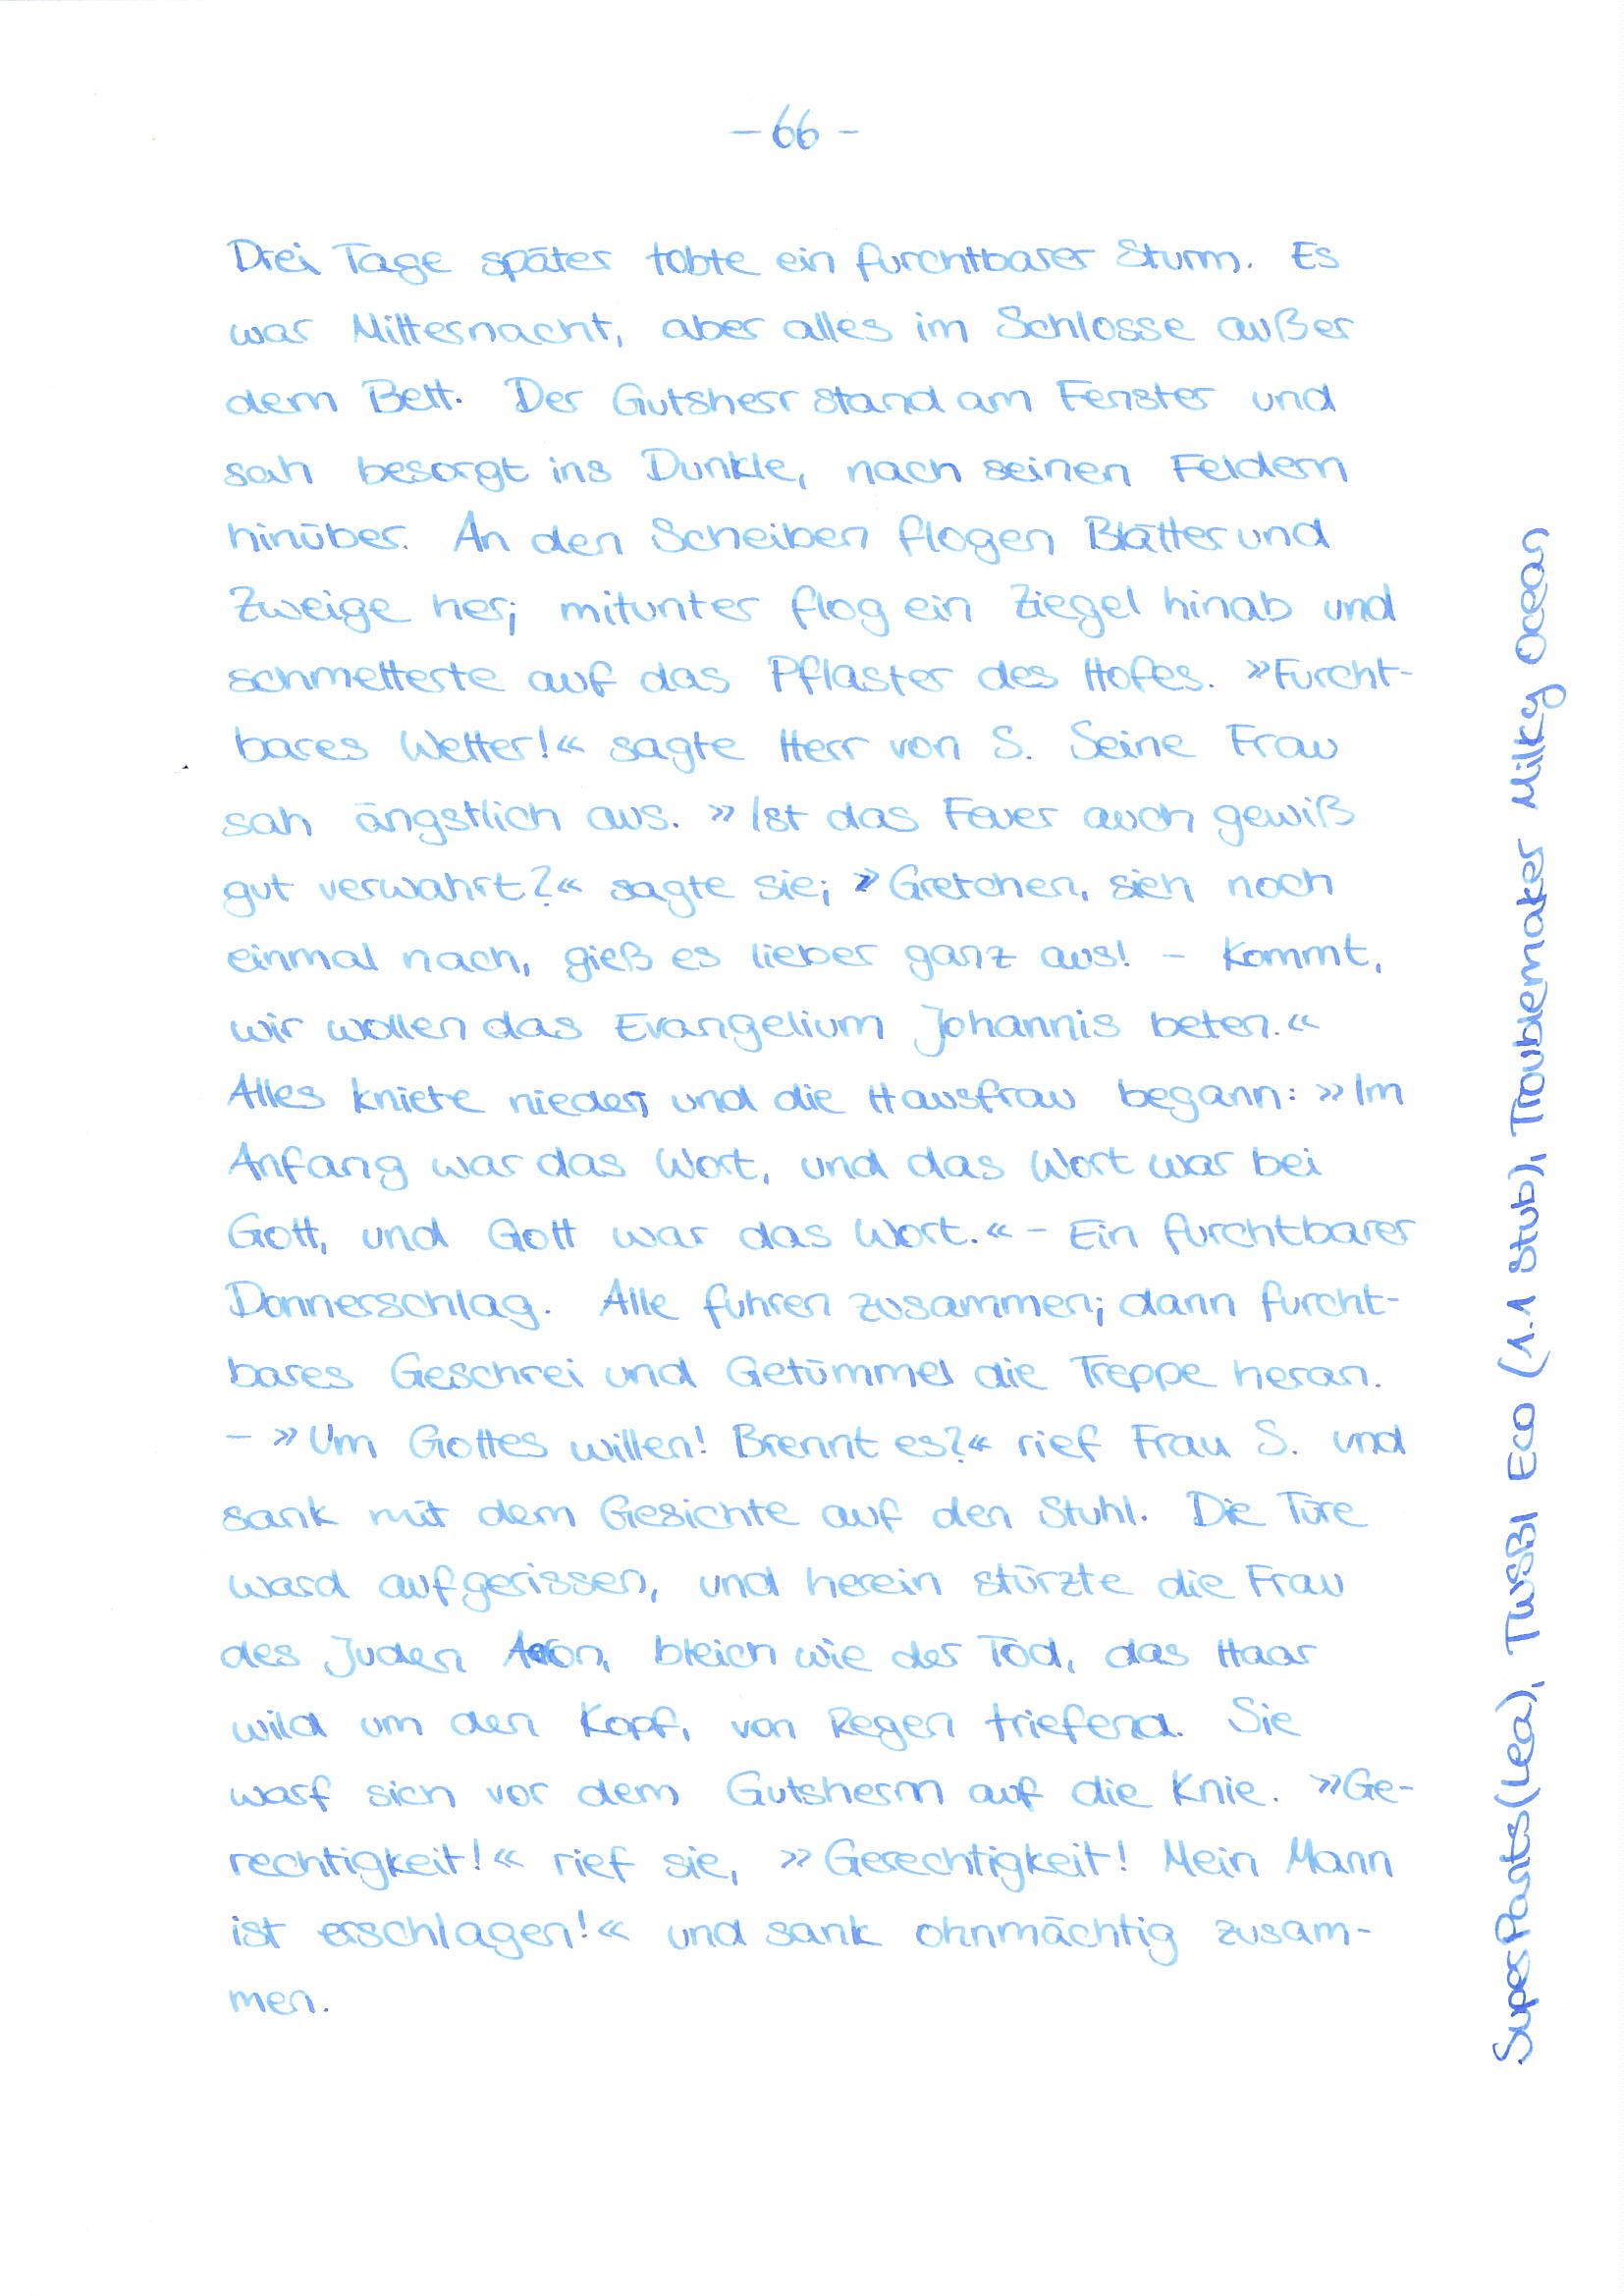 - 66 -
Drei Tage später tobte ein furchtbarer Sturm. Es
war Mitternacht, aber alles im Schlosse außer
dem Bett. Der Gutsherr stand am Fenster und
sah besorgt ins Dunkle, nach seinen Feldern
hinüber. An den Scheiben flogen Blätter und
Zweige her; mitunter flog ein Ziegel hinab und
schmetterte auf das Pflaster des Hofes. »Furcht-
bares Wetter!« sagte Herr von S. Seine Frau
sah ängstlich aus. »Ist das Feuer auch gewiß
gut verwahrt?« sagte sie; »Gretchen, sieh noch
einmal nach, gieß es lieber ganz aus! - Kommt,
wir wollen das Evangelium Johannis beten.«
Alles kniete nieder, und die Hausfrau begann: »Im
Anfang war das Wort, und das Wort war bei
Gott, und Gott war das Wort.« - Ein furchtbarer
Donnerschlag. Alle fuhren zusammen; dann furcht-
bares Geschrei und Getümmel die Treppe heran.
- »Um Gottes willen! Brennt es?« rief Frau S. und
sank mit dem Gesichte auf den Stuhl. Die Türe
ward aufgerissen, und herein stürzte die Frau
des Juden bleich wie der Tod, das Haar
wild um den Kopf, von Regen triefend. Sie
warf sich vor dem Gutsherrn auf die Knie. »Ge-
rechtigkeit!« rief sie, »Gerechtigkeit! Mein Mann
ist erschlagen!« und sank ohnmächtig zusam-
men.
SuperPants (Lea), TWSBI Eco (1.1 Stub), Troublemaker Milky Ocean